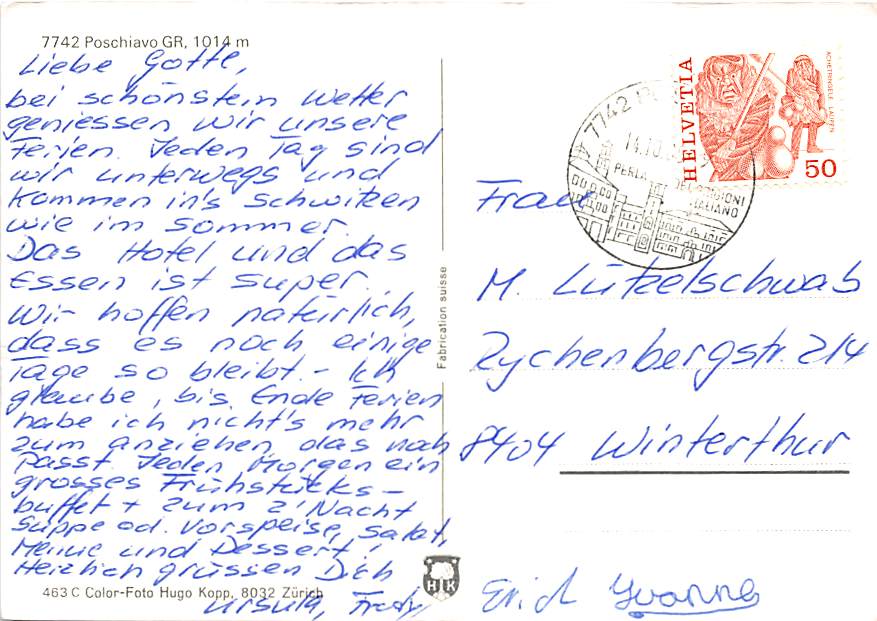 7742 Poschiavo GR, 1014 m
Liebe Gotte,
bei schönstein Wetter
geniessen wir unsere
Ferien. Jeden Tag sind
wir unterwegs und
kommen in's Schwitzen
wie im Sommer.
Das Hotel und das
Essen ist super.
Wir hoffen natürlich,
dass es noch einige
Tage so bleibt. - Ich
glaube, bis Ende Ferien
habe ich nicht's mehr
zum anziehen, das noch
passt. Jeden Morgen ein
grosses Frühstücks-
buffet + zum z'Nacht
Suppe od. Vorspeise, Salat,
Menue und Dessert!
Herzlich grüssen Dich
Ursula, Fredy
Erich Yvonne
463 C Color-Foto Hugo Kopp, 8032 Zürich
Fabrication suisse
HK
7742
14.10.
PERLA
ITALIANO
HELVETIA
ACHETRINGELE LAUPEN
50
Frau
M. Lützelschwab
Rychenbergstr. 214
8404 Winterthur